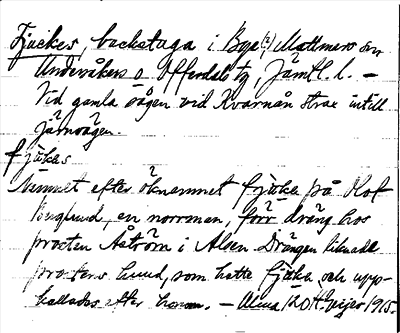 Fjuckes, backstuga i Bye (?) Mattmars sn
Undersåkers o Offerdals tg, Jämtl. l. —
Vid gamla vägen vid Kvarnån strax intill
Järnvägen.
fjukas
Namnet efter öknamnet fjucka på Olof
Berglund, en norrman, förr dräng hos
prosten Åström i Alsen. Drängen liknade
prostens hund, som hette fjucka och upp-
kallades efter honom. — Alma 1915.